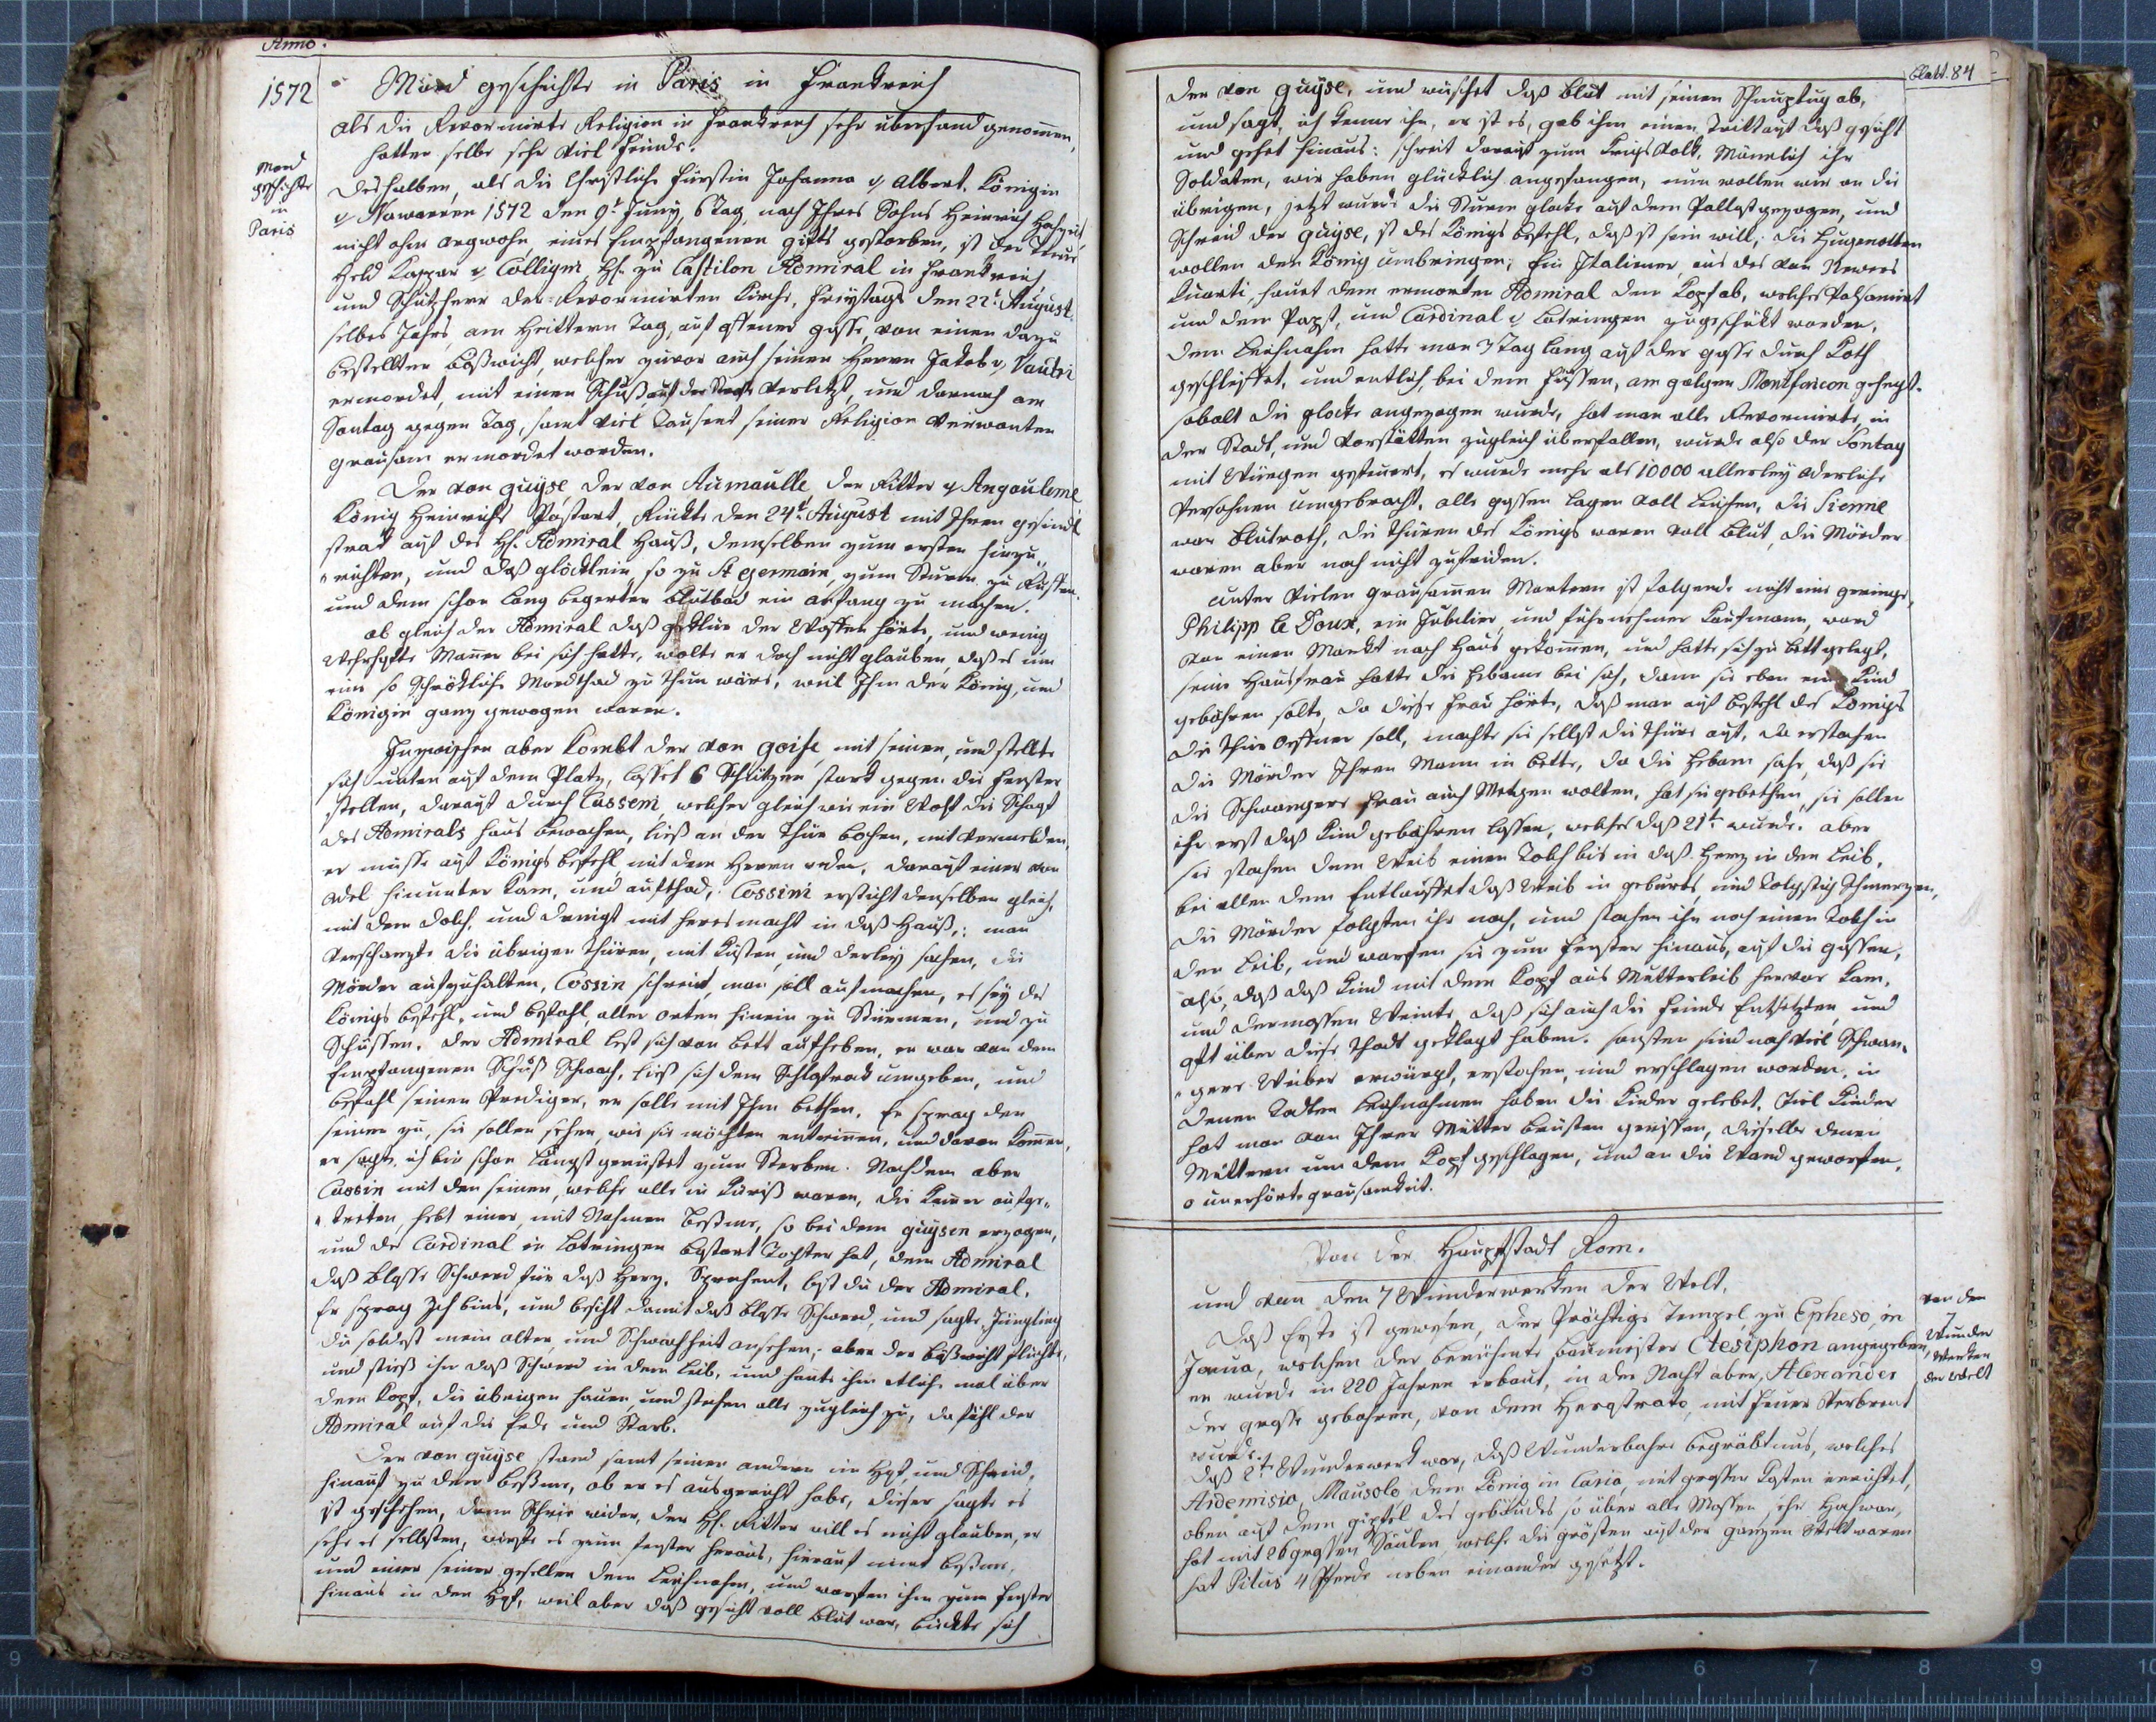 Anno.
1572
Mord geschichte in Paris in Frankreich
als die Reformirte Religion in Frankreich sehr überhand genommen,
hatten selbe sehr viel feinde.
Mord
geschichte
in
Paris
deshalben, als die Christliche fürstin Johanna v Albert, Königin
v Nawarren 1572 den 9t Juny, 6 Tag nach Ihres Sohns Heinrich Hochzeit
nicht ohne argwohn, eines Empfangenen gifts gestorben, ist der Teure
Held Caspar v Colligni, H. zu Castilon Admiral in Frankreich
und Schutzherr der Reformirten Kirche, freytags den 22t August
selbes Jahrs, am Heittern Tag, auf offener gasse, von einen dazu
bestellten bößwicht, welcher zuvor auch seinen Herrn Jakob v Vautri
ermordet, mit einen Schuß auf der verletzt, und darnach am
Sontag gegen Tag, samt viel Tausent seiner Religion verwanten
grausam ermordet worden.
Der von guÿse, der von Aumaulle, der Ritter v Angouleme
König Heinrichs Bastart, Rückte den 24t August mit Ihren gesindl
strak auf des H. Admiral Hauß, demselben zum ersten hinzu
richten, und daß glöcklein, so zu St germain, zum Sturm zu
und dem schon lang begerten blutbad ein anfang zu machen.
ob gleich der Admiral daß geklir der Waffen hörte, und wenig
Wehrhafte Männer bei sich hatte, wolte er doch nicht glauben, daß es um
eine so schröckliche Mordthad zu thun wäre, weil Ihm der König, und
Königin ganz gewogen waren.
Inzwischen aber kombt der von goise, mit seinen, und stellte
sich unten auf dem Platz, lasset 6 Schützen stark gegen die fenster
stellen, darauf durch Cusseni, welcher gleich wie ein Wolf die Schaf
des Admirals haus bewachen, ließ an der Thür bochen, mit vermelden,
er müsse auf Königs befehl mit dem Herrn reden, darauf einer von
adel hinunter kam, und aufthad, Cossini ersticht denselben gleich,
mit dem dolch, und dringt mit heeresmacht in daß Hauß, man
verschanzte die übrigen thüren, mit küsten, und derley sachen, die
Mörder aufzuhalten, Cossin schreit, man soll aufmachen, es sey des
Königs befehl, und befahl, aller orten hinein zu Stürmen, und zu
Schüssen. der Admiral lest sich von bett aufheben, er war von dem
Empfangenen Schuß schwach, ließ sich dem Schlafrock umgeben, und
befahl seinen Prediger, er solle mit Ihm bethen. Er sprag den
seinen zu, sie sollen sehen, wie sie möchten entrinnen, und davon komen,
er sagte, ich bin schon längst gerüstet zum Sterben. Nachdem aber
Cossin mit den seinen, welche alle in Küris waren, die kamer aufge-
tretten, hebt einer, mit Nahmen beßme, so bei dem guÿsen erzogen,
und des Cardinal in Lotringen bastart Tochter hat, dem Admiral
daß blosse Schwerd für daß herz. Sprechent, bist du der Admiral.
Er sprag Ich bins, und besicht damit daß blosse Schwerd, und sagte, Jüngling
du soldest mein alter, und Schwachheit ansehen, aber der bößwicht fluchte,
und stieß ihm daß Schwerd in dem leib, und haute ihm etliche mal über
dem Kopf, die übrigen hauen, und stechen alle zugleich zu, da fihl der
Admiral auf die Erde und Starb.
der von guÿse stand samt seinen andern im Hof, und Schreid,
hinauf zu dem beßme, ob er es ausgericht habe, dieser sagte es
ist geschehen, dem Schrie wider, der H. Ritter will es nicht glauben, er
sehe es selbsten, werfe es zum fenster heraus, hierauf nimt beßme,
und einer seiner gesellen dem Leichnahm, und warfen ihn zum fenster
hinaus in den Hof, weil aber daß gesicht voll blut war, bückte sich
blatt. 84
der von guÿse, und wüschet daß blut mit seinen Schnuptug ab,
und sagt, ich kenne ihn, er ist es, gab ihm einen Tritt auf daß gesicht
und gehet hinaus: schreit darauf zum krigsvolk, Männlich ihr
Soldaten, wir haben glücklich angefangen, nun wollen wir an die
übrigen, jetzt wurde die Sturm glocke auf dem Pallast gezogen, und
Schreid der guÿse, ist des Königs befehl, daß ist sein will, die Hugenotten
wollen den König umbringen; Ein Italiener, aus des von Newers
Quarti, hauet dem ermorten Admiral dem Kopf ab, welcher Palsamirt
und dem Papst, und Cardinal v Lotringen zugeschickt worden,
dem Leichnahm hatte man 3 Tag lang auf der gasse durch Koth
geschleiffet, und entlich bei dem füssen, am galgen Montfaucon gehengt.
sobalt die glocke angezogen wurde, hat man alle Reformirte, in
der Stadt, und vorstätten zugleich überfallen, wurde also der Sontag
mit Würgen gefeuert, es wurde mehr als 10000 allerley Aderliche
Persohnen umgebracht, alle gassen lagen voll Leichen, die Sienne
war blutroth, die thüren des Königs waren voll blut, die Mörder
waren aber noch nicht zufriden.
unter vielen grausamen Martern ist folgende nicht eine geringe,
Philipp le Doux, ein Jubelier, und fürnehmer Kaufmann, ward
von einen Markt nach Haus gekomen, und hatte sich zu bett gelegt,
seine Hausfrau hatte die Hebame bei sich, dann sie eben ein Kind
gebähren solte, da diese Frau hörte, daß man auf befehl des Königs
die thür öeffnen soll, machte sie sellst die thüre auf, da erstachen
die Mörder Ihren Mann in bette, da die Hebam sahe, daß sie
die Schwangere frau auch Metzgen wolten, hat sie gebethen, sie sollen
ihr erst daß Kind gebähren lassen, welches daß 21t wurde. aber
sie stachen dem Weib einen Tolch bis in daß Herz in den Leib,
bei allen dem Entlauffet daß Weib in geburts, und Tolchstich Schmerzen,
die Mörder folgten ihr nach, und stachen ihr noch einen Tolch in
den Leib, und warfen sie zum fenster hinaus, auf die gassen,
also, daß daß Kind mit dem Kopf aus Mutterleib hervor kam,
und dermassen Weinte, daß sich auch die feinde Entsetzten, und
oft über diese thadt geklagt haben. sonsten sind noch viel Schwan-
gere Weiber erwürgt, erstochen, und erschlagen worden, in
denen Todten Leichnahmen haben die Kinder gelebet, Viel Kinder
hat man von Ihrer Mütter brüsten gerissen, dieselbe denen
Müttern um dem Kopf geschlagen, und an die Wand geworfen,
o unerhörte grausamkeit.
Von der Hauptstadt Rom.
und von den 7 Wunderwerken der Welt.
von den
7
Wunder
Werken
der Welt
daß Erste ist gewesen, der Prächtige Tempel zu Epheso, in
Jonua, welchen der berühmte baumeister Ctesiphon angegeben,
er wurde in 220 Jahren erbaut, in der Nacht aber, Alexander
der grosse gebohren, von dem Herostrato, mit feuer Verbrent
wurde.
daß 2te Wunderwerk war, daß Wunderbahre begräbtnus, welches
Ardemisia, Mausolo dem König in Caria, mit grossen Kosten errichtet,
oben auf dem gipfel des gebäudes so über alle Massen, sehr Hoch war,
hat mit 26 grossen Säulen, welche die grösten auf der ganzen Welt waren
hat Pitus 4 Pferde neben einander gesetzt.